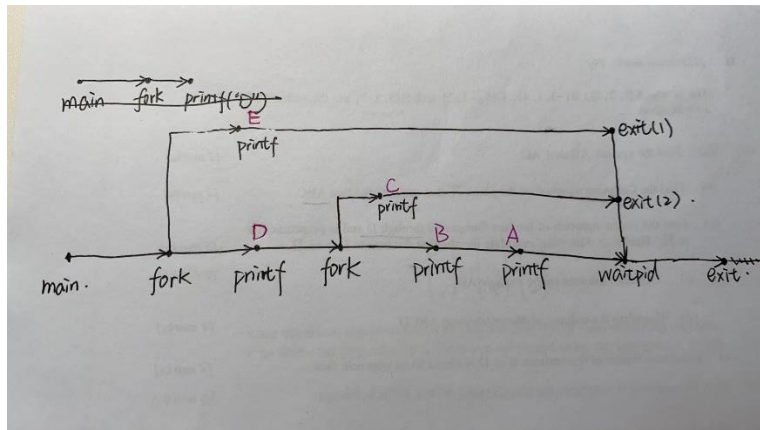 main fork printf("D")
E
printf
exit(1)
C
printf
exit(2).
D B A
main. fork printf fork printf printf waitpid exit.